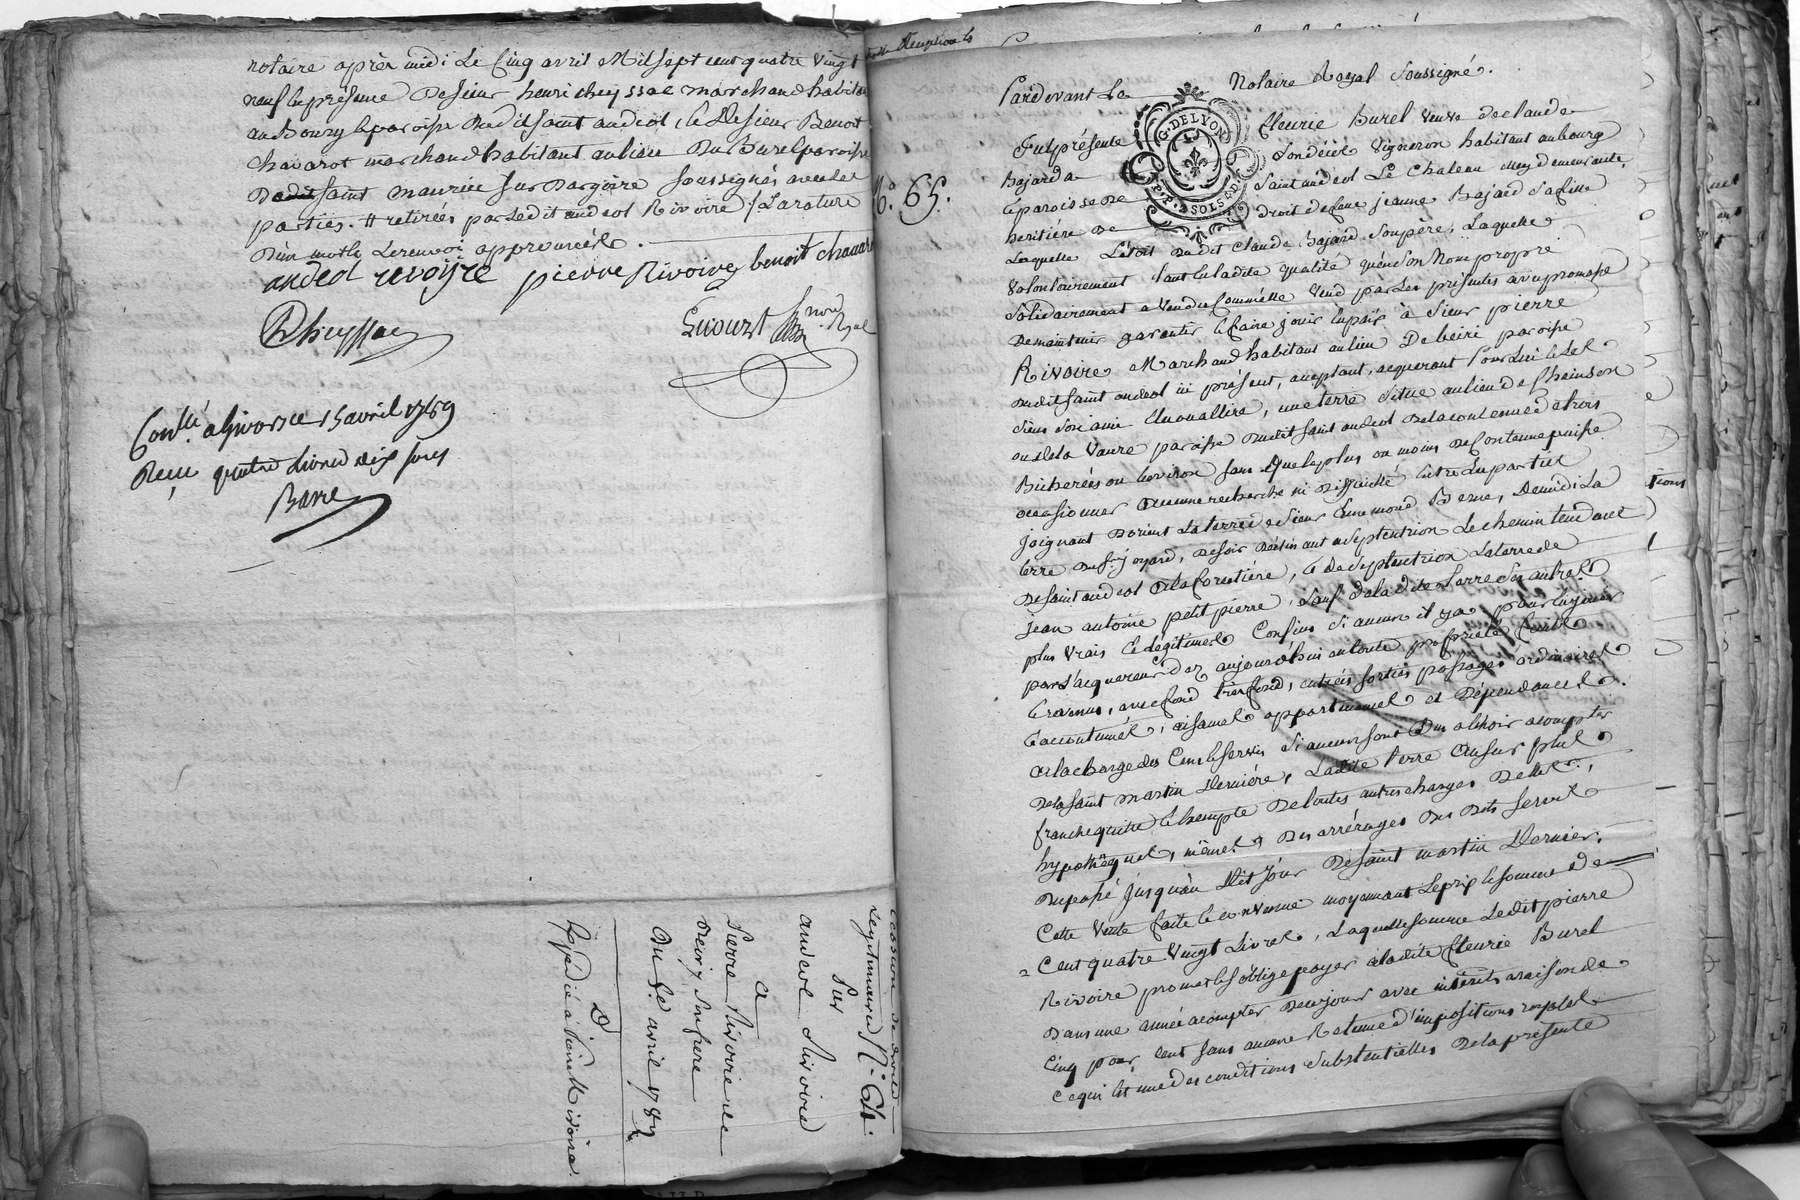 notaire après midi Le Cinq avril Mil sept cent quatre vingt
neuf en présence De sieur henri cheyssac marchand habitan
au Bourg & paroisse Dudit saint andeol, & De sieur Benoit
chavarot marchand habitant au lieu Du Burel paroisse
De saint maurice sur Dargoire soussignés avec les
parties. # retirées par Ledit andeol Rivoire / La rature
D'un mot & Le renvoi approuvés.
andeol rivoire pierre Rivoire benoit chavaro
Cheyssac
not. Royal
Con.lé a givors ce 15 avril 1789
Reçu quatre Livres dix sous
Barre
Cession de droits
Legitimaires N.o 64.
Par
andeol Rivoire
a
Pierre Rivoire de
son frere
Du 5e. avril 1789
D
Expédié à Pierre Rivoire
N.o 65.
Pardevant Le Notaire Royal Soussigné.
G. DE LYON
P.P. 2 SOLS 8 D.
Fut présente fleurie Burel veuve de claude
Bajard a son décès vigneron habitant au bourg
& paroisse de Saint andeol Le Chateau y demeurante,
heritière de droit de feue jeanne Bajard sa fille
Laquelle L'étoit Dudit claude Bajard son père, Laquelle
volontairement tant en ladite qualité qu'en son nom propre
solidairement a vendu & comme elle vend par ces présentes avec promesse
De maintenir garantir & faire jouir en paix à sieur pierre
Rivoire Marchand habitant au lieu De paroisse
Dudit saint andeol ici présent, acceptant, acquerant pour lui & les
siens une terre située au lieu de
ou de la Vaure paroisse Dudit saint andeol De la contenue de trois
Bicherées ou environ sans que le plus ou moins De contenue puisse
occasionner aucune recherche ni Difficulté entre les parties
joignant D'orient La terre de sieur Ennemond Bezne, De midi La
terre Du Sr. joyard, De soir Déclinant à septentrion Le chemin tendant
De saint andeol à la forestière, & De septentrion La terre de
Jean antoine petit pierre, sauf de ladite terre ses autres
plus vrais & légitimes Confins si aucun il y a pour en jouir
par l'acquereur dez aujourd'hui en toute proprieté fruits
& revenus, avec fond tresfond, entrées sorties passages ordinaires
& accoutumés, aisances appartenances et Dépendances
à la charge des Cens & servis si aucuns sont dus à echoir à compter
De la saint martin Dernière, Ladite terre au sur plus
franche quitte & exempte De toutes autres charges Dettes,
hypothèques, mêmes Des arrérages Des Dits servis
Du passé jusqu'au Dit jour De saint martin Dernier.
Cette vente faite & convenue moyennant Le prix & somme de
Cent quatre vingt Livres, Laquelle somme Ledit pierre
Rivoire promet & s'oblige payer à ladite fleurie Burel
Dans une année à compter De ce jour avec intérêts à raison de
Cinq pour cent sans aucune Retenue d'impositions royales
ce qui est une des conditions substentielles De la présente